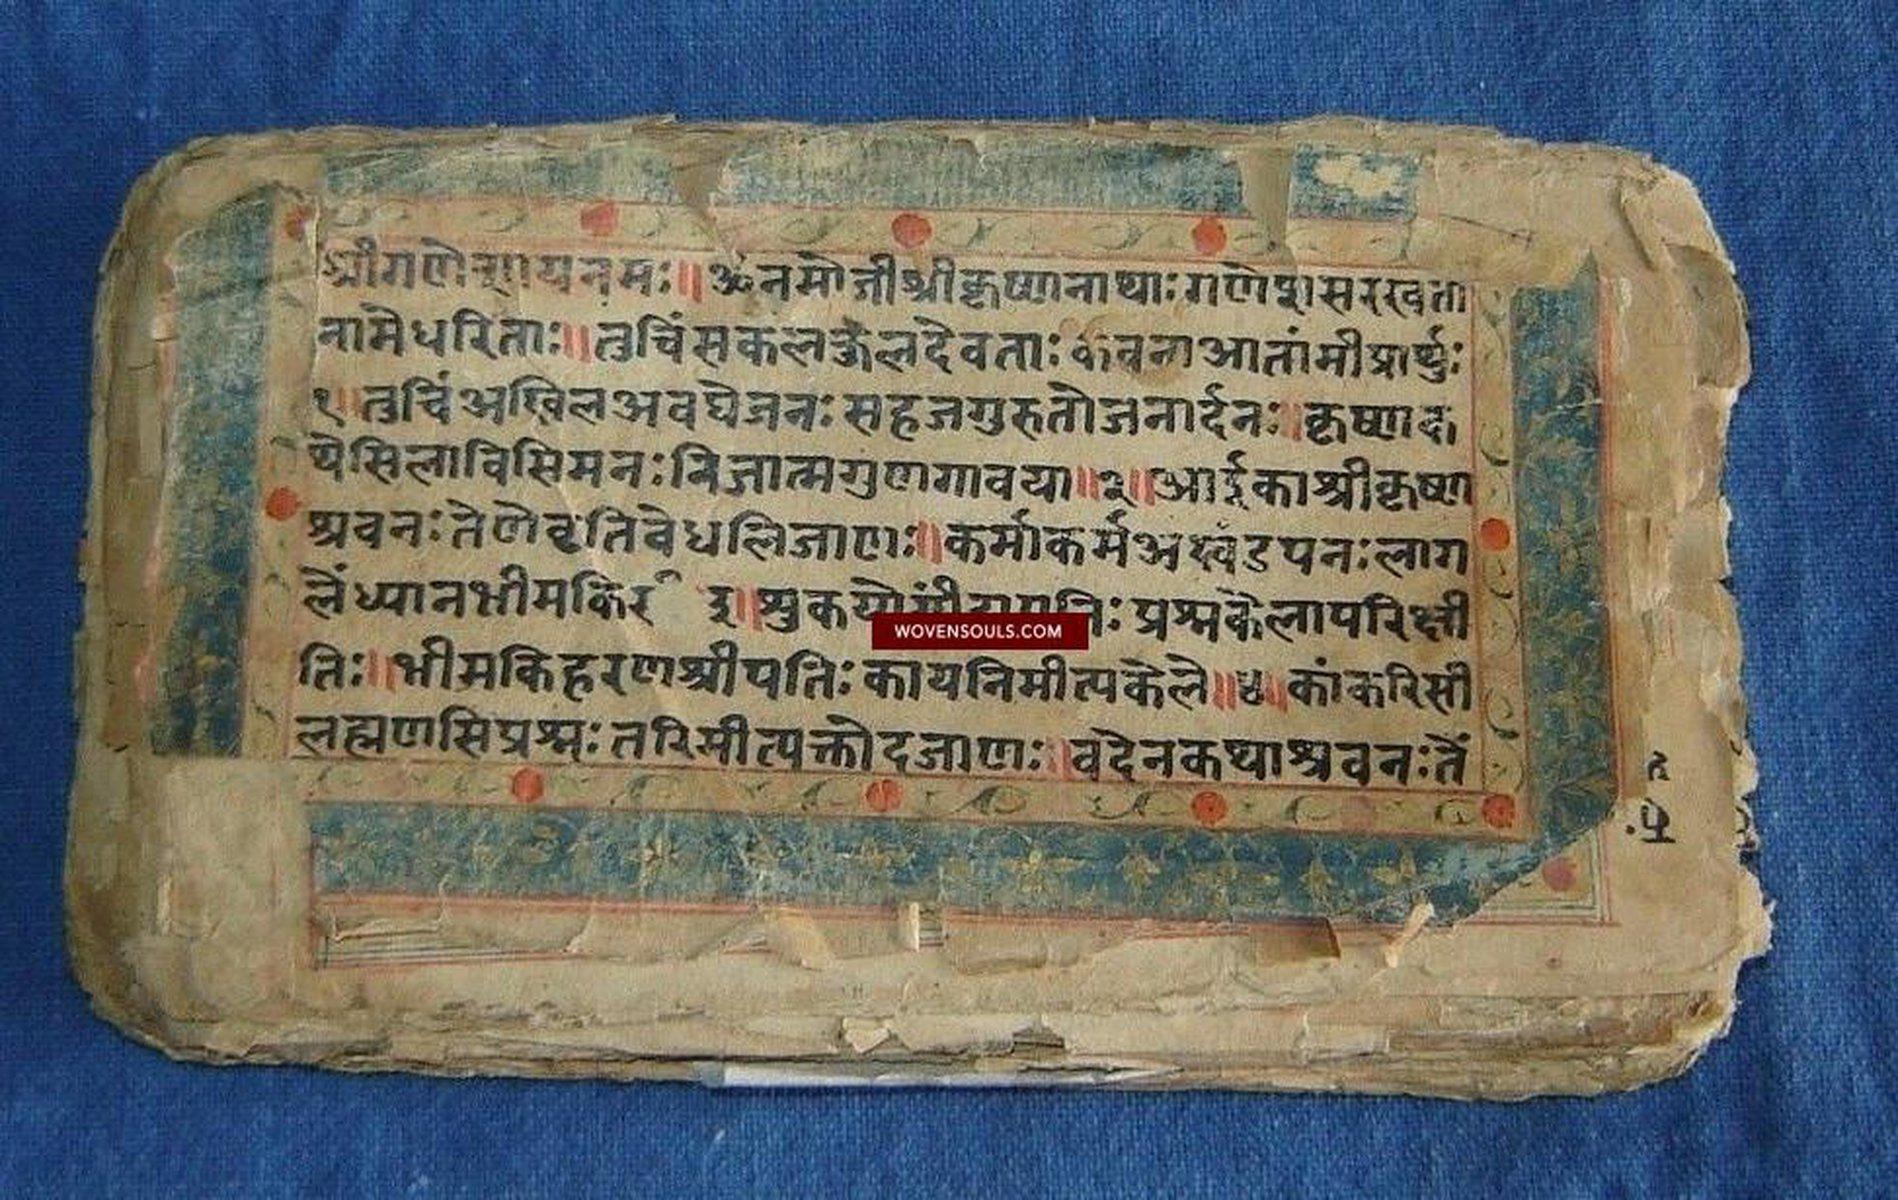 श्रीगणेशायनमः॥ॐनमोजीश्रीकृष्णनाथाः गणेशसरस्वता
नामैधरिताः॥तुचिंसकलकुलदैवताः आतांमीप्रार्थुः
१॥तुचिंअखिलअवघेजनः सहजगुरुतोजनार्दनः॥कृष्णद
येसिलाविसिमनः निजात्मगुणगावया॥२॥आईकाश्रीकृष्ण
श्रवनः तेणेवृतिवेधलिजाणः॥कर्माकर्मअखंडपनः लाग
लैंध्यानभीमकिर ३॥शुकयोगी प्रश्नकेलापरिक्षी
तिः॥भीमकिहरणश्रीपतिः कायनिमीत्यकेले॥४॥कांकरिसी
लह्मणसिप्रश्नः तरिमीत्यक्तोदजाणः॥वदेनकथाश्रवनः तें
WOVENSOULS.COM